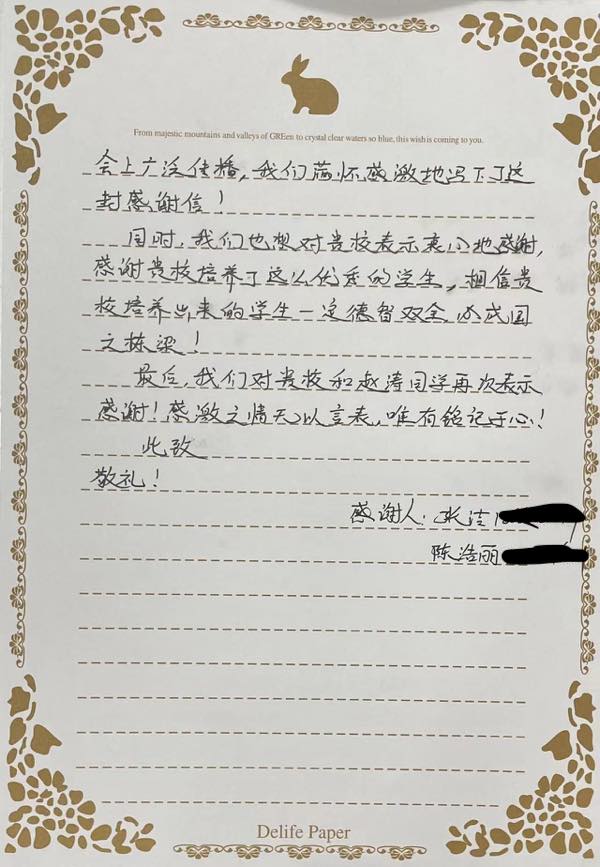 From majestic mountains and valleys of GREen to crystal clear waters so blue, this wish is coming to you.
会上广泛传播，我们满怀感激地写下了这
封感谢信！
同时，我们也想对贵校表示衷心地感谢，
感谢贵校培养了这么优秀的学生，相信贵
校培养出来的学生一定德智双全，必成国
之栋梁！
最后，我们对贵校和赵涛同学再次表示
感谢！感激之情无以言表，唯有铭记于心！
此致
敬礼！
感谢人：张洁
陈浩丽
Delife Paper